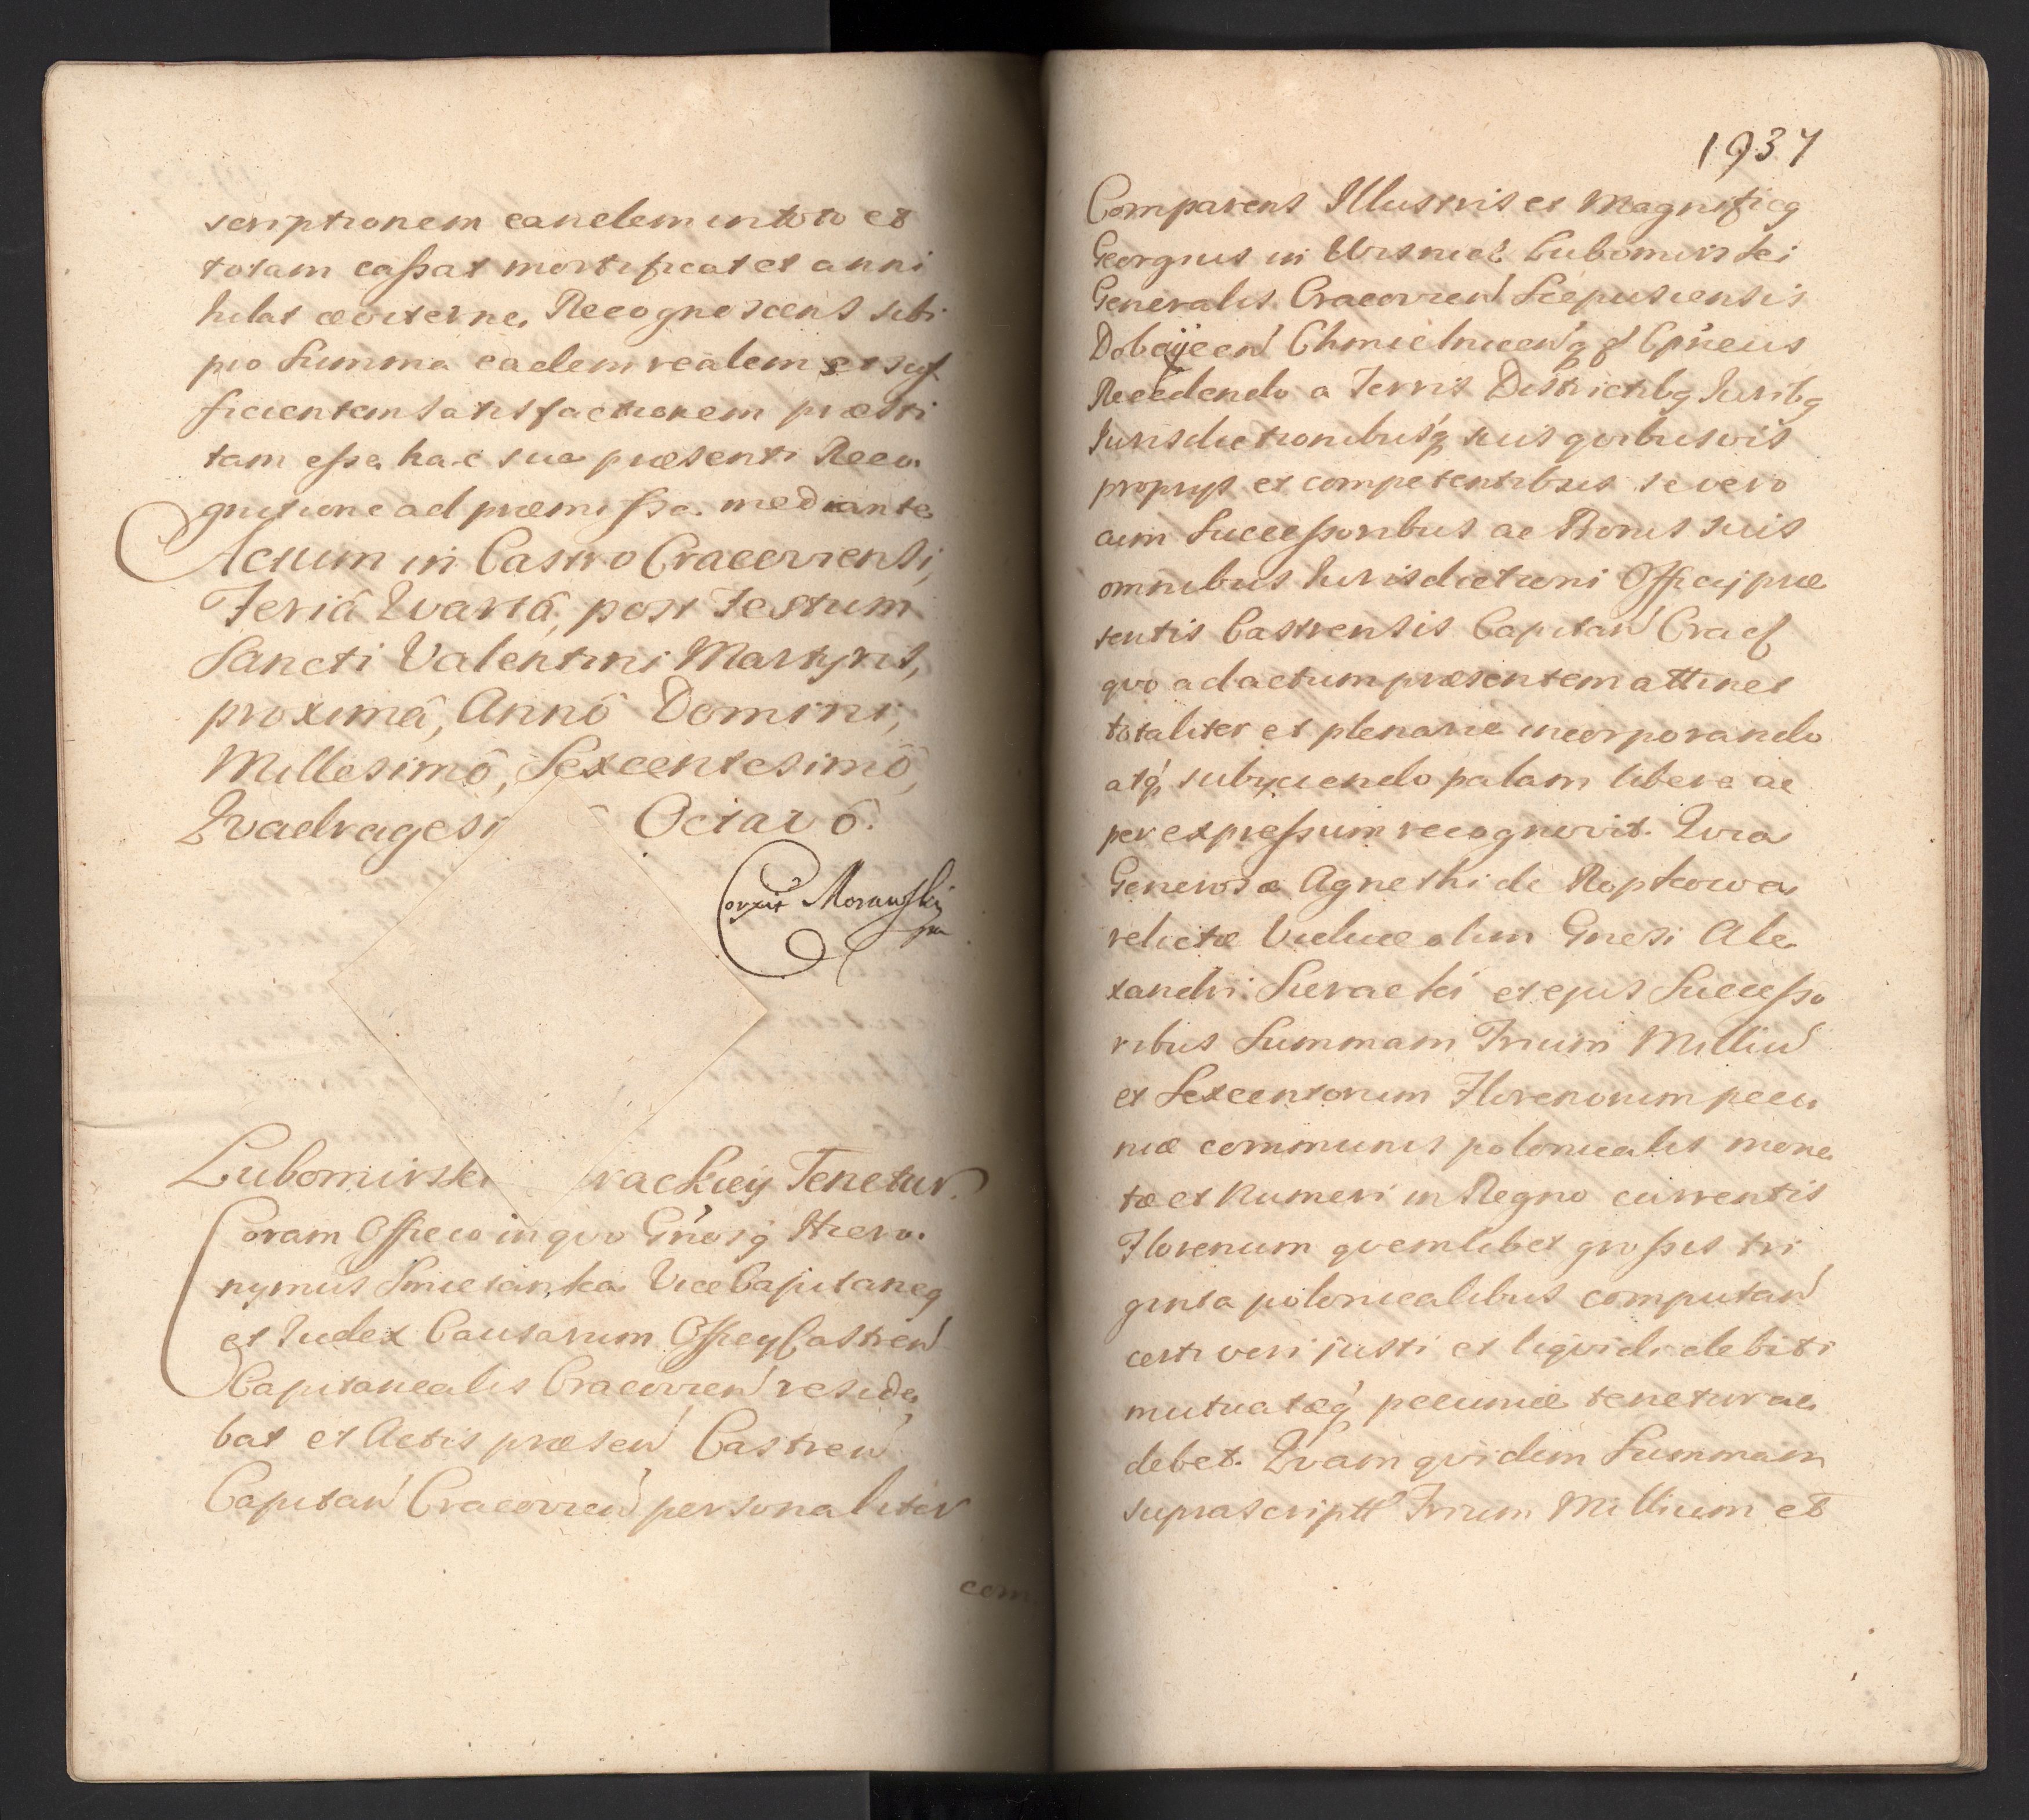 scriptionem eandem in toto et
totam caßat mortificat et anni
hilat æviterne, Recognoscens sibi
pro Summa eadem realem et suf
ficientem satisfactionem præsti
tam eße hac sua præsenti Reco
gnitione ad præmißa mediante
Actum in Castro Cracoviensi,
Feriâ Qvartâ, post Festum
Sancti Valentini Martyris,
proximâ, Annô Domini,
Millesimô, Sexcentesimô,
Qvadragesi Octavô.
Corrit Morawski
Lubomirski rackiey Tenetur.
Coram Officio in qvo Gnosq Hiero
nymus Smietanka ViceCapitaneq
et Iudex Causarum Officy Castren
Capitanealis Cracovien reside
bat et Actis præsen Castren
Capitan Cracovien personaliter
com
1937
Comparens Illustris et Magnificq
Georgius in Wisnicz Lubomirski
Generalis Cracovien Scepusiensis
Chmielnicenq
Recedendo a Terris Districtibq Iuribq
Iurisdictionibusq suis qvibusvis
proprys et competentibus se vero
cum Succeßoribus ac Bonis suis
omnibus Iurisdictioni Officy præ
sentis Castrensis Capitan Crac
qvo ad actum præsentem attinet
totaliter et plenarie incorporando
atq subyciendo palam libere ac
per expreßum recognovit. Qvia
Generosæ Agnethi de Ropkowa
relictæ Viduæ olim Gnesi Ale
xandri Sieracki et ejus Succeßo
ribus Summam Trium Milliu
et Sexcentorum Florenorum pecu
niæ communis polonicalis mone
tæ et Numeri in Regno currentis
Florenum qvemlibet großis tri
ginta polonicalibus computan
certi veri justi et liqvidi debiti
mutuatæq pecuniæ tenetur ac
debet. Qvam qvidem Summam
suprascriptt Trium Millium et